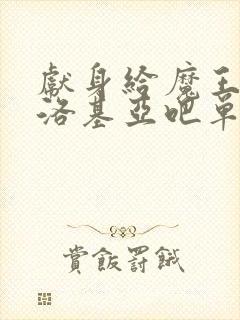 獻身給魔王
洛基亞吧單
賞飯罰餓